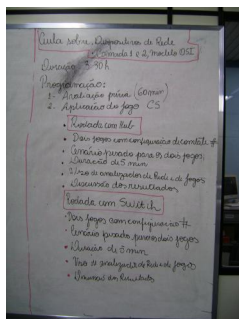 Aula sobre Dispositivos de Rede
Camada 1 e 2, modelo OSI
Duração 3:30h
Programação:
1. Avaliação prévia (60min)
2. Aplicação do jogo CS
• Rodada com Hub
• Dois jogos com configuração de combate
• Cenário pesado para os dois jogos
• Duração de 5 min
• Uso de analizador de Rede e de jogos
• Discussão dos resultados
Rodada com Switch
• Dois jogos com configuração
• Cenário pesado para os dois jogos
• Duração de 5 min
• Uso de analizador de Rede e de jogos
• Discussão dos Resultados